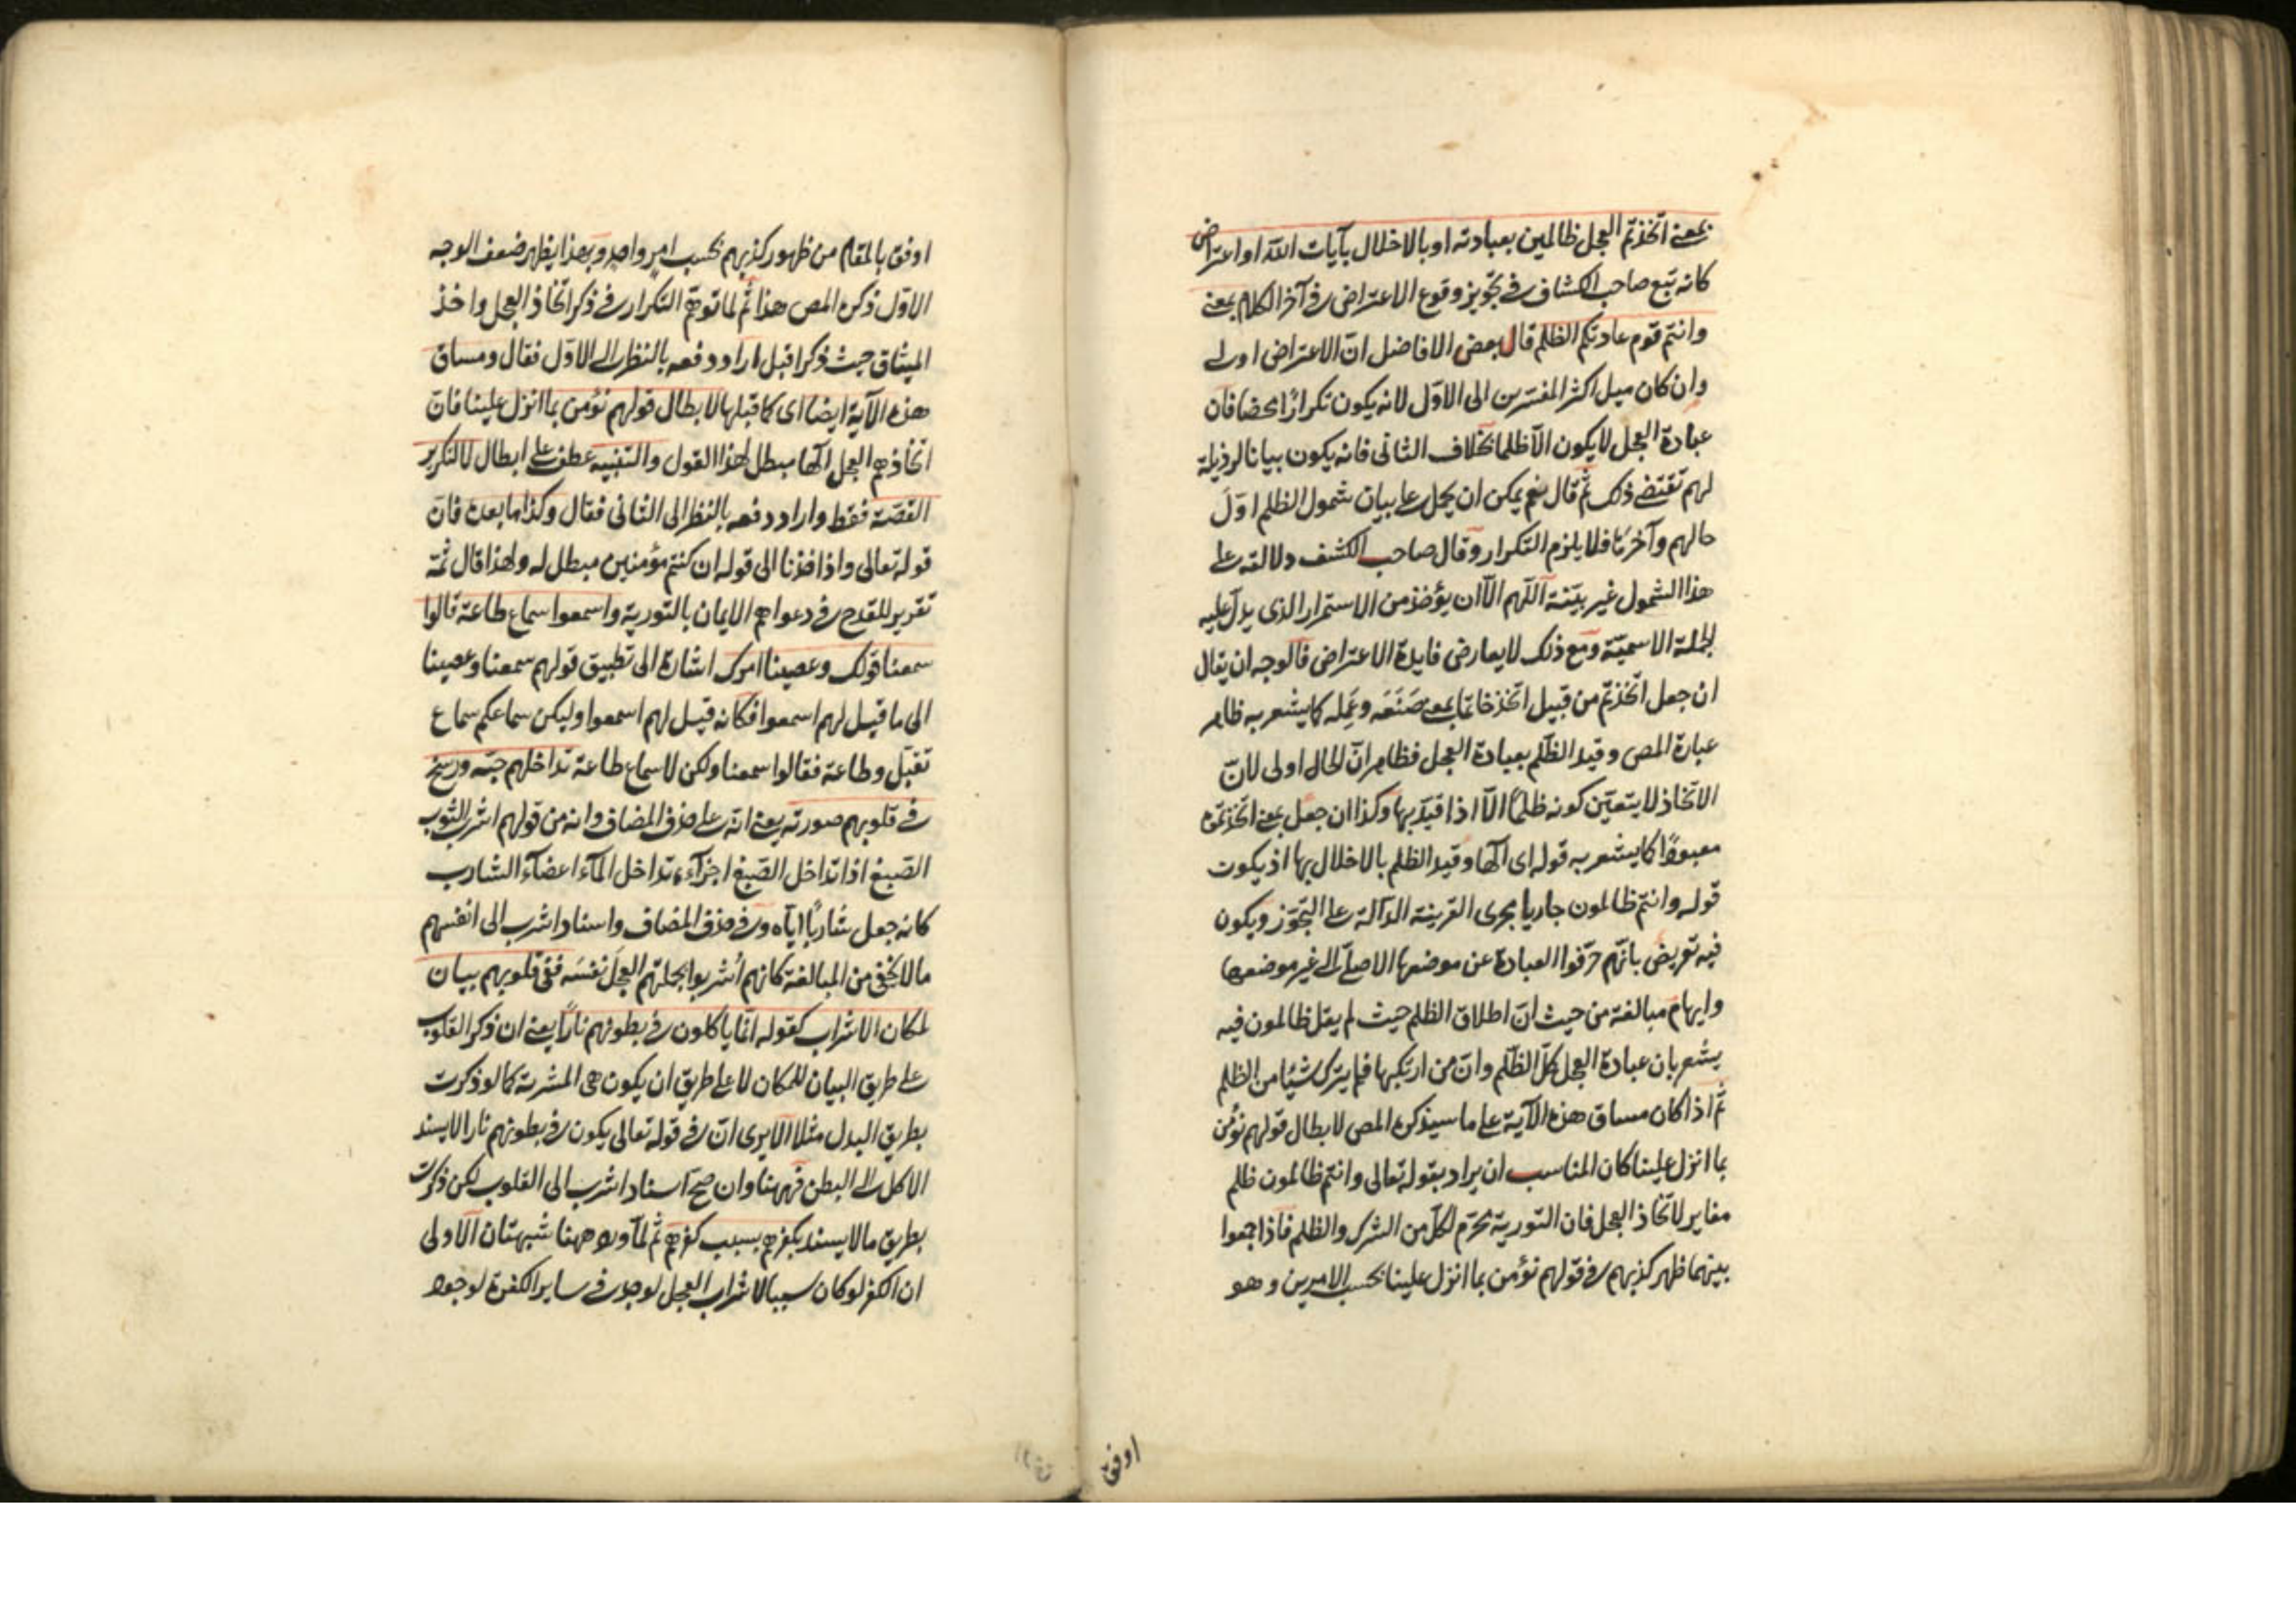 بمعنى اتخذتم العجل ظالمين بعبادته او بالاخلال بآيات الله او اعتراض
كانه تبع صاحب الكشاف في تجويز وقوع الاعتراض في آخر الكلام بمعنى
وانتم قوم عادتكم الظلم قال بعض الافاضل ان الاعتراض اولى
وان كان ميل اكثر المفسرين الى الاول لانه يكون تكرارا محضا فان
عبادة العجل لا يكون الا ظلما بخلاف الثانى فانه يكون بيانا لرذيلة
لهم تقتضى ذلك ثم قال نعم يمكن ان يحمل على بيان شمول الظلم اول
حالهم وآخرها فلا يلزم التكرار وقال صاحب الكشف دلالته على
هذا الشمول غير بيّنة اللهم الا ان يؤخذ من الاستمرار الذى يدل عليه
الجملة الاسمية ومع ذلك لا يعارض فايدة الاعتراض فالوجه ان يقال
ان جعل اتخذتم من قبيل اتخذ خاتما بمعنى صَنَعَه وعَمِله كما يشعر به ظاهر
عبارة المص وقيد الظلم بعبادة العجل فظاهر ان الحال اولى لان
الاتخاذ لا يتعين كونه ظلما الا اذا قيد بها وكذا ان جعل بمعنى اتخذتموه
معبودا كما يشعر به قوله اى الها وقيد الظلم بالاخلال بها اذ يكون
قوله وانتم ظالمون جاريا مجرى القرينة الدالة على التجوز ويكون
فيه تعريض بانهم حرفوا العبادة عن موضعها الاصلى الى غير موضعها
وايهام مبالغة من حيث ان اطلاق الظلم حيث لم يقل ظالمون فيه
يشعر بان عبادة العجل كل الظلم وان من ارتكبها فلم يترك شيئا من الظلم
ثم اذا كان مساق هذه الآية على ما سيذكره المص لابطال قولهم نؤمن
بما انزل علينا كان المناسب ان يراد بقوله تعالى وانتم ظالمون ظلم
مغاير لاتخاذ العجل فان التورية تحرم لكل من الشرك والظلم فاذا جمعوا
بينهما ظهر كذبهم في قولهم نؤمن بما انزل علينا بحسب الامرين وهو
اوفق
اوفق بالمقام من ظهور كذبهم بحسب امر واحد وبهذا يظهر ضعف الوجه
الاول ذكره المص هذا ثم لما توهم التكرار في ذكر اتخاذ العجل واخذ
الميثاق حيث ذكرا قبل اراد دفعه بالنظر الى الاول فقال ومساق
هذه الآية ايضا اى كما قبلها لابطال قولهم نؤمن بما انزل علينا فان
اتخاذهم العجل الها مبطل لهذا القول والتنبيه عطف على ابطال لا لتكرير
القصة فقط واراد دفعه بالنظر الى الثانى فقال وكذا ما بعده فان
قوله تعالى واذ اخذنا الى قوله ان كنتم مؤمنين مبطل له ولهذا قال ثمة
تقرير للقدح في دعواهم الايمان بالتورية واسمعوا سماع طاعة قالوا
سمعنا قولك وعصينا امرك اشارة الى تطبيق قولهم سمعنا وعصينا
الى ما قيل لهم اسمعوا فكانه قيل لهم اسمعوا وليكن سماعكم سماع
تقبل وطاعة فقالوا سمعنا ولكن لا سماع طاعة تداخلهم حبه ورسخ
في قلوبهم صورته يعنى انه على حذف المضاف وانه من قولهم اشرب الثوب
الصبغ اذا تداخل الصبغ اجزآءه تداخل المآء اعضآء الشارب
كانه جعل شاربا اياه وفي حذف المضاف واسناد اشرب الى انفسهم
ما لا يخفى من المبالغة كانهم أشربوا بجملتهم العجل نفسَه ففى قلوبهم بيان
لمكان الاشراب كقوله انما ياكلون في بطونهم نارا يعنى ان ذكر القلوب
على طريق البيان للمكان لا على طريق ان يكون هى المشربة كما لو ذكرت
بطريق البدل مثلا الا يرى ان في قوله تعالى يكون في بطونهم نارا لا يسند
الاكل الى البطن فههنا وان صح اسناد اشرب الى القلوب لكن ذكرت
بطريق ما لا يسند بكفرهم بسبب كفرهم ثم لما ورد ههنا شبهتان الاولى
ان الكفر لو كان سببا لاشراب العجل لوجد في ساير الكفرة لوجود